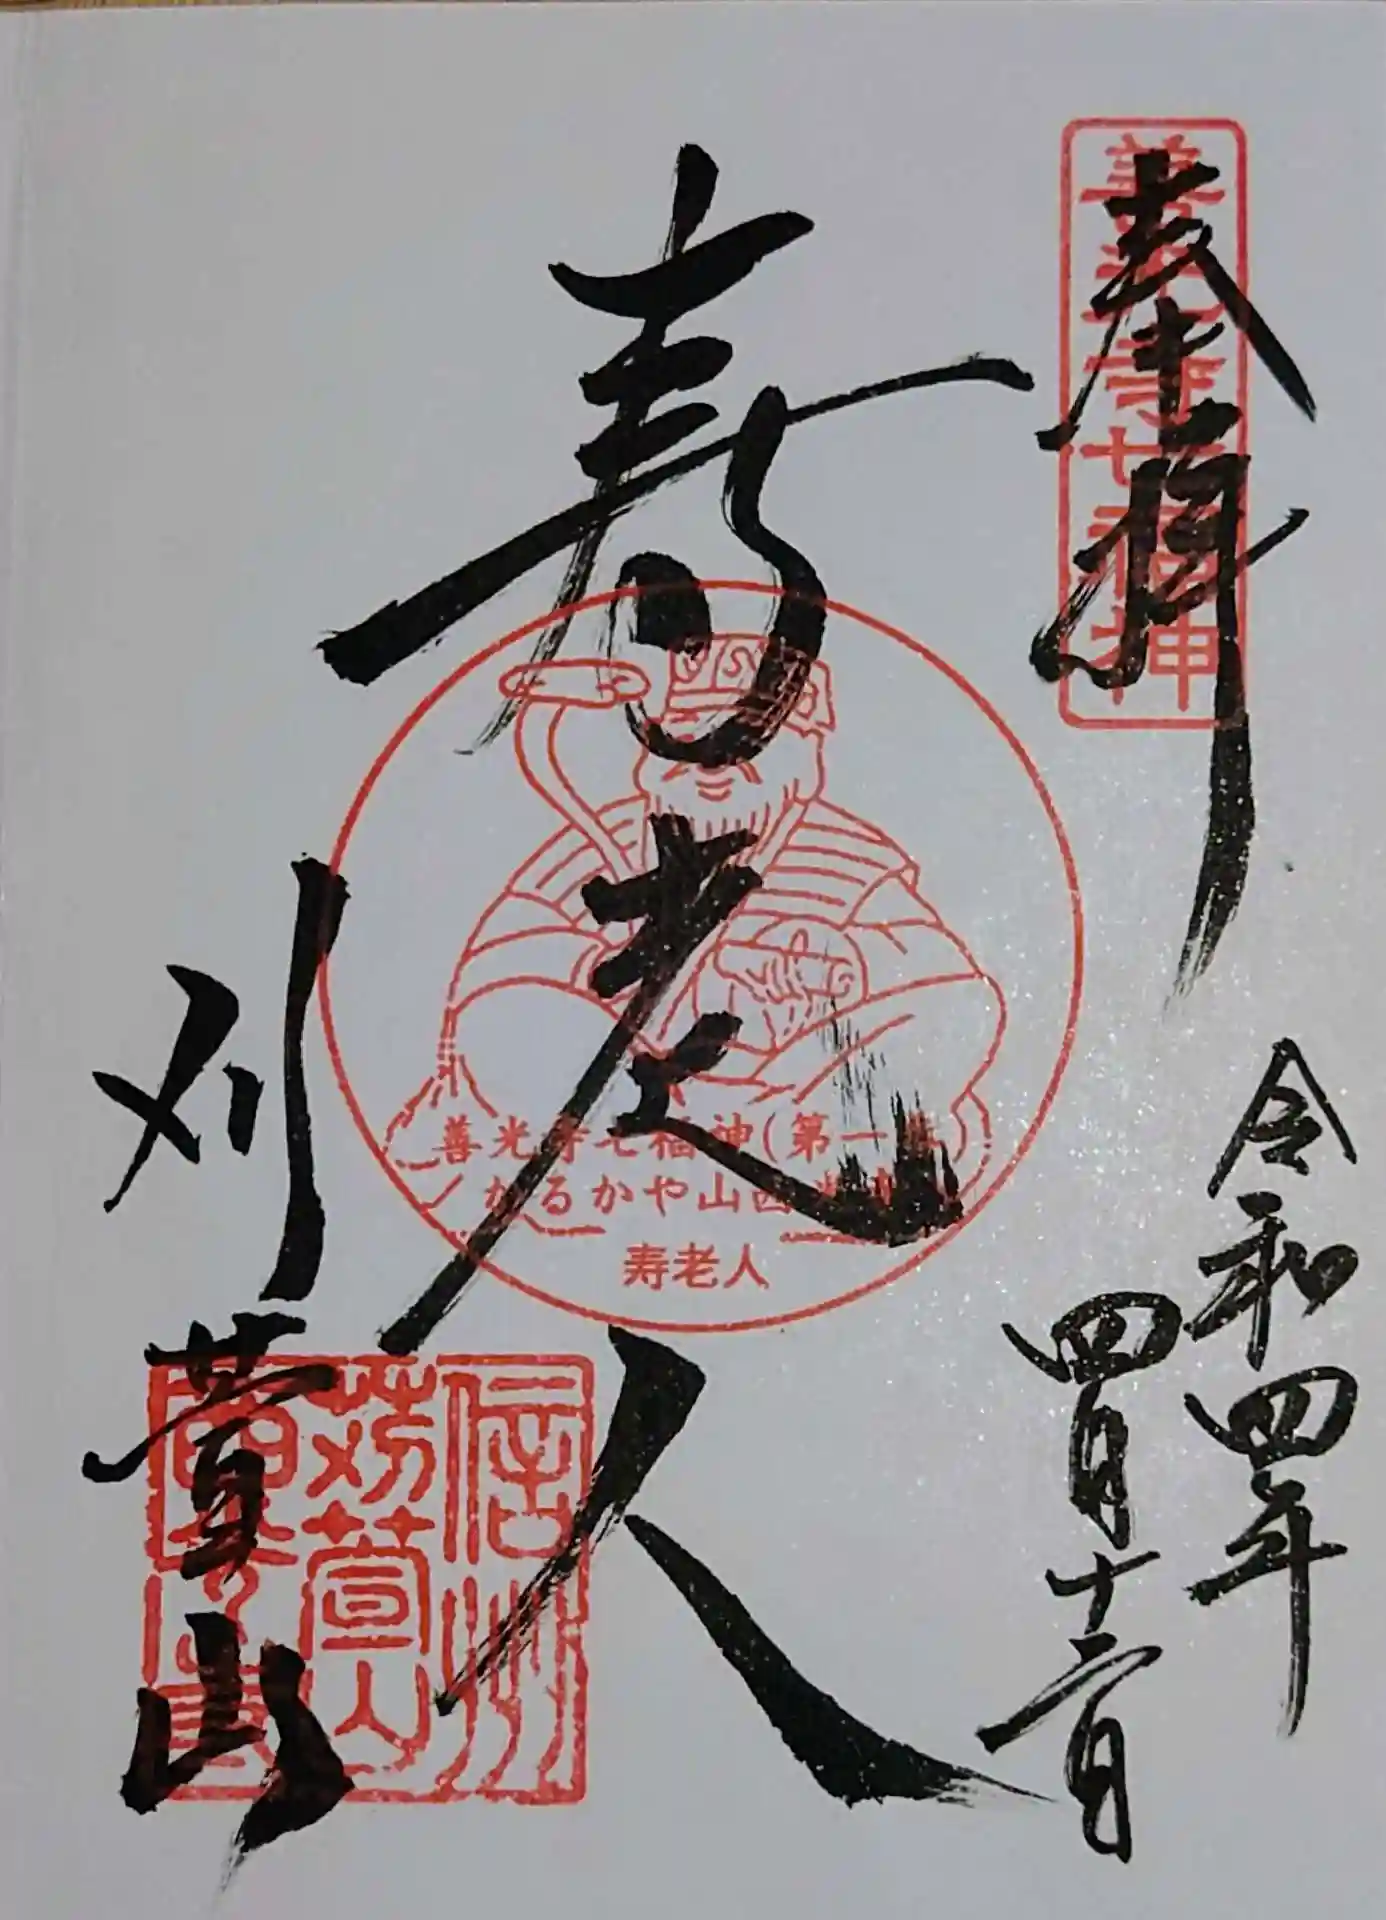 奉拝
善光寺七福神
令和四年
四月十二日
寿老人
善光寺七福神(第一番)
かるかや山西光寺
寿老人
刈萱山
信州
苅萱山